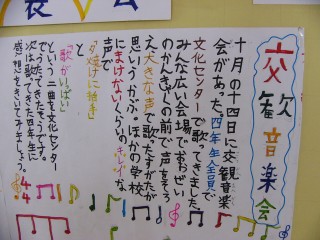 交歓音楽会
十月の十四日に交観音楽
会があった。四年生全員で
文化センターで歌ってきました
みんな広い会場でおおぜい
のかんきゃくの前で声をそろ
え大きな声で歌たすがたが
思いうかぶ。ほかの学校
にまけないくらいのキレイな
声で
夕焼けに拍手
「歌がいっぱい」
という二曲を文化センター
でうたってきたそうです。
次は歌ってきた四年生に
感想をきいてみましょう。